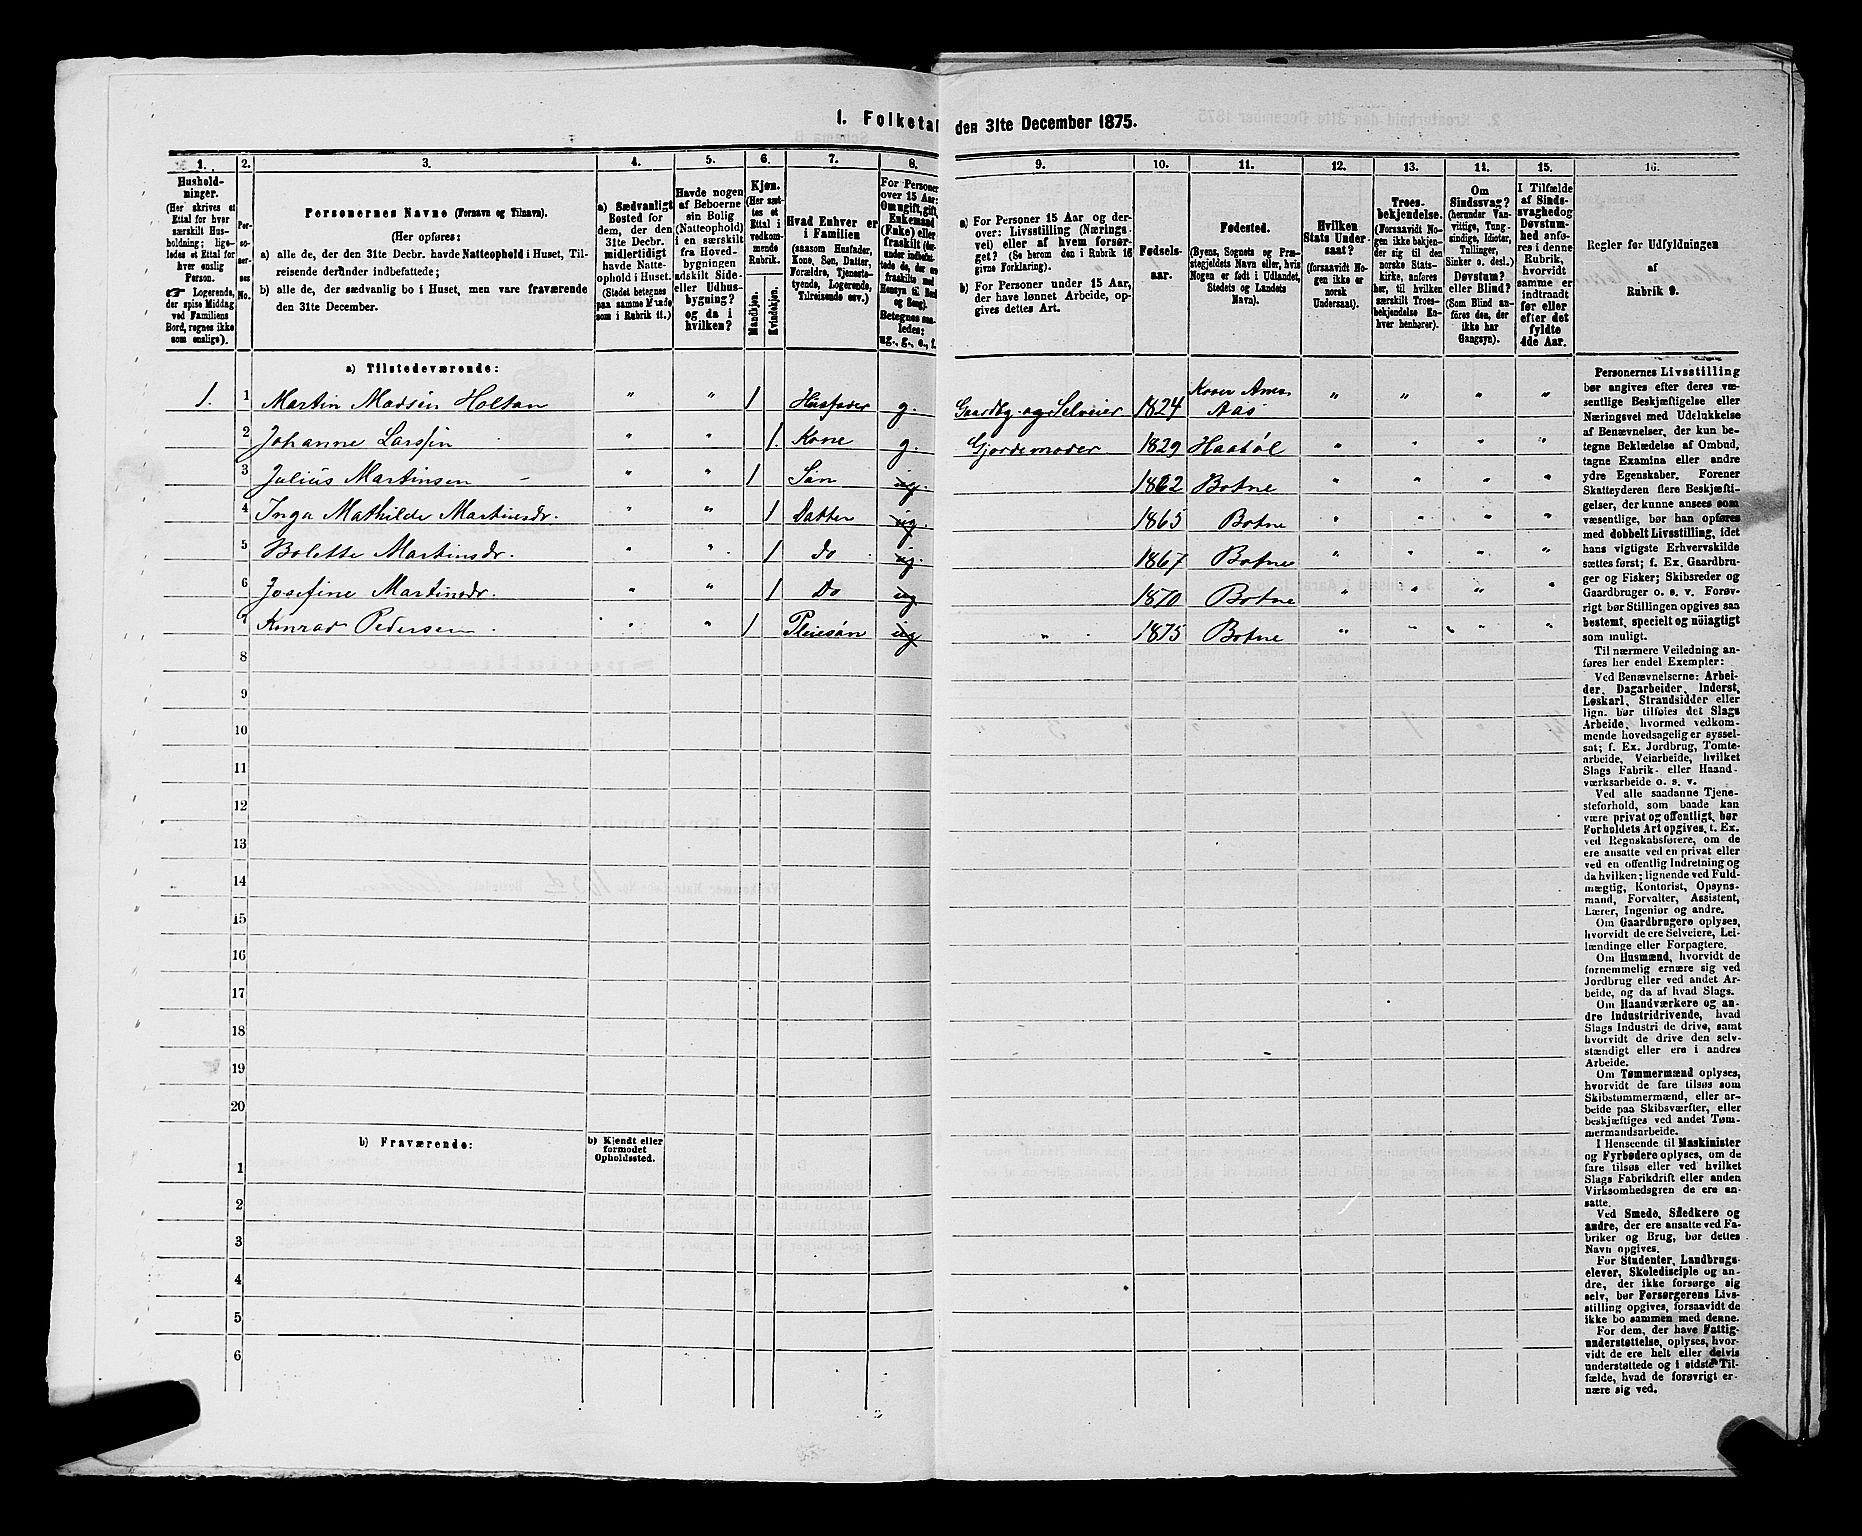 1. Folketal
den 31te December 1875.
1. 2. 3. 4. 5. 6. 7. 8. 9. 10. 11. 12. 13. 14. 15. 16.
Hushold-
ninger.
(Her skrives et
Ettal for hver
særskilt Hus-
holdning; lige-
ledes et Ettal for
hver enslig
Person.
☞ Logerende,
der spise Middag
ved Familiens
Bord, regnes ikke
som enslige).
Per-
so-
nernes
No.
Personernes Navne (Fornavn og Tilnavn).
(Her opføres:
a) alle de, der den 31te Decbr. havde Natteophold i Huset, Til-
reisende derunder indbefattede;
b) alle de, der sædvanlig bo i Huset, men vare fraværende
den 31te December.
a) Sædvanligt
Bosted for
dem, der den
31te Decbr.
midlertidigt
havde Natte-
ophold i Huset.
(Stedet betegnes
paa samme Maade
som i Rubrik 11.)
Havde nogen
af Beboerne
sin Bolig
(Natteophold)
i en særskilt
fra Hoved-
bygningen
adskilt Side-
eller Udhus-
bygning?
og da i
hvilken?
Kjøn.
(Her sæt-
tes et
Ettal i
vedkom-
mende
Rubrik.
Mandkjøn.
Kvindekjøn.
Hvad Enhver er
i Familien
(saasom Husfader,
Kone, Søn, Datter,
Forældre, Tjeneste-
tyende, Logerende,
Tilreisende osv.)
For Personer
over 15 Aar:
Om ugift, gift,
Enkemand
(Enke) eller
fraskilt
Betegnes saa-
ledes:
ug., g., e., f.
a) For Personer 15 Aar og der-
over: Livsstilling (Nærings-
vei) eller af hvem forsør-
get? (Se herom den i Rubrik 16
givne Forklaring).
b) For Personer under 15 Aar,
der have lønnet Arbeide, op-
gives dettes Art.
Fødsels-
aar.
Fødested.
(Byens, Sognets og Præ-
stegjeldets Navn eller, hvis
Nogen er født i Udlandet,
Stedets og Landets
Navn).
Hvilken
Stats Under-
saat?
(forsaavidt No-
gen ikke er
norsk
Undersaat).
Troes-
bekjendelse.
(Forsaavidt No-
gen ikke bekjen-
der sig til den
norske Stats-
kirke, anføres
her, til hvilken
særskilt Troes-
bekjendelse En-
hver henhører).
Om
Sindssvag?
(herunder Van-
vittige, Tung-
sindige, Idioter,
Tullinger,
Sinker o. desl.)
Døvstum?
eller Blind?
(Som Blind an-
føres den, der
ikke har
Gangsyn).
I Tilfælde
af Sinds-
svaghed og
Døvstum-
hed anfø-
res i denne
Rubrik,
hvorvidt
samme er
indtraadt
før eller
efter det
fyldte
4de Aar.
Regler før Udfyldningen
af
Rubrik 9.
a) Tilstedeværende:
1. 1 Martin Madsen Holtan " " 1 Husfader g. Gaardbg. og Selveier 1824 Aas " " " "
2 Johanne Larssen " " 1. Kone g. Gjordemoder 1829 Haabøl " " " "
3 Julius Martinsen " " 1 Søn ug. 1862 Botne " " " "
4 Inga Mathilde Martinsdr. " " 1 Datter ug. 1865 Botne " " " "
5 Bolette Martinsdr. " " 1 Do ug. 1867 Botne " " " "
6 Josefine Martinsdr. " " 1 Do ug. 1870 Botne " " " "
7 Konrad Pedersen " " 1 Pleiesøn ug " 1875 Botne " " " "
8
9
10
11
12
13
14
15
16
17
18
19
20
b) Fraværende:
b) Kjendt eller
formodet
Opholdssted.
1
2
3
4
5
6
Personernes Livsstilling
bør angives efter deres væ-
sentlige Beskjæftigelse eller
Næringsvei med Udelukkelse
af Benævnelser, der kun be-
tegne Beklædelse af Ombud,
tagne Examina eller andre
ydre Egenskaber. Forener
Skatteyderen flere Beskjæfti-
gelser, der kunne ansees som
væsentlige, bør han opføres
med dobbelt Livsstilling, idet
hans vigtigste Erhvervskilde
sættes først; f. Ex. Gaardbru-
ger og Fisker; Skibsreder og
Gaardbruger o. s. v. Forøv-
rigt bør Stillingen opgives saa
bestemt, specielt og nøiagtigt
som muligt.
Til nærmere Veiledning an-
føres her endel Exempler:
Ved Benævnelserne: Arbei-
der, Dagarbeider, Inderst,
Løskarl, Strandsidder eller
lign. bør tilføies det Slags
Arbeide, hvormed vedkom-
mende hovedsagelig er syssel-
sat; f. Ex. Jordbrug, Tomte-
arbeide, Veiarbeide, hvilket
Slags Fabrik- eller Haand-
værksarbeide o. s. v.
Ved alle saadanne Tjene-
steforhold, som baade kan
være privat og offentligt, bør
Forholdets Art opgives, t. Ex.
ved Regnskabsførere, om de
ere ansatte ved en privat eller
ved en offentlig Indretning og
da hvilken; lignende ved Fuld-
mægtig, Kontorist, Opsyns-
mand, Forvalter, Assistent,
Lærer, Ingeniør og andre.
Om Gaardbrugere oplyses,
hvorvidt de ere Selveiere, Lei-
lændinge eller Forpagtere.
Om Husmænd, hvorvidt de
fornemmelig ernære sig ved
Jordbrug eller ved andet Ar-
beide, og da af hvad Slags.
Om Haandværkere og an-
dre Industridrivende, hvad
Slags Industri de drive, samt
hvorvidt de drive den selv-
stændigt eller ere i andres
Arbeide.
Om Tømmermænd oplyses,
hvorvidt de fare tilsøs som
Skibstømmermænd, eller ar-
beide paa Skibsværfter, eller
beskjæftiges ved andet Tøm-
mermandsarbeide.
I Henseende til Maskinister
og Fyrbødere oplyses, om de
fare tilsøs eller ved hvilket
Slags Fabrikdrift eller anden
Virksomhedsgren de ere an-
satte.
Ved Smede, Snedkere og
andre, der ere ansatte ved Fa-
briker og Brug, bør dettes
Navn opgives.
For Studenter, Landbrugs-
elever, Skoledisciple og an-
dre, der ikke forsørge sig
selv, bør Forsørgerens Livs-
stilling opgives, forsaavidt de
ikke bo sammen med denne.
For dem, der have Fattig-
understøttelse, oplyses, hvor-
vidt de ere helt eller delvis
understøttede og i sidste Til-
fælde, hvad de forøvrigt er-
nære sig ved.